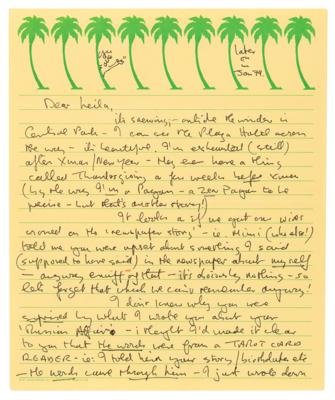 later
on
in
Jan '79.
Dear Leila,
its snowing,- outside the window is
Central Park - I can see the Plaza Hotel across
the way - its beautiful. I'm exhausted (still)
after Xmas/New Year - They even have a thing
called Thanksgiving a few weeks before Xmas
(by the way I'm a Pagan - a Zen Pagan to be
precise - but that's another story!)
It looks as if we got our wires
crossed on the 'newspaper story' - ie. Mimi (who else!)
told me you were upset about something I said
(supposed to have said) in the newspaper about myself
- anyway enuff of that - it's obviously nothing - so
lets forget that which we can't remember anyway!
I don't know why you were
surprised by what I wrote you about your
'Russian Affair' - i thought I'd made it clear
to you that the words were from a TAROT CARD
READER - ie: I told him your story/birthdate etc
- the words came through him - I just wrote down